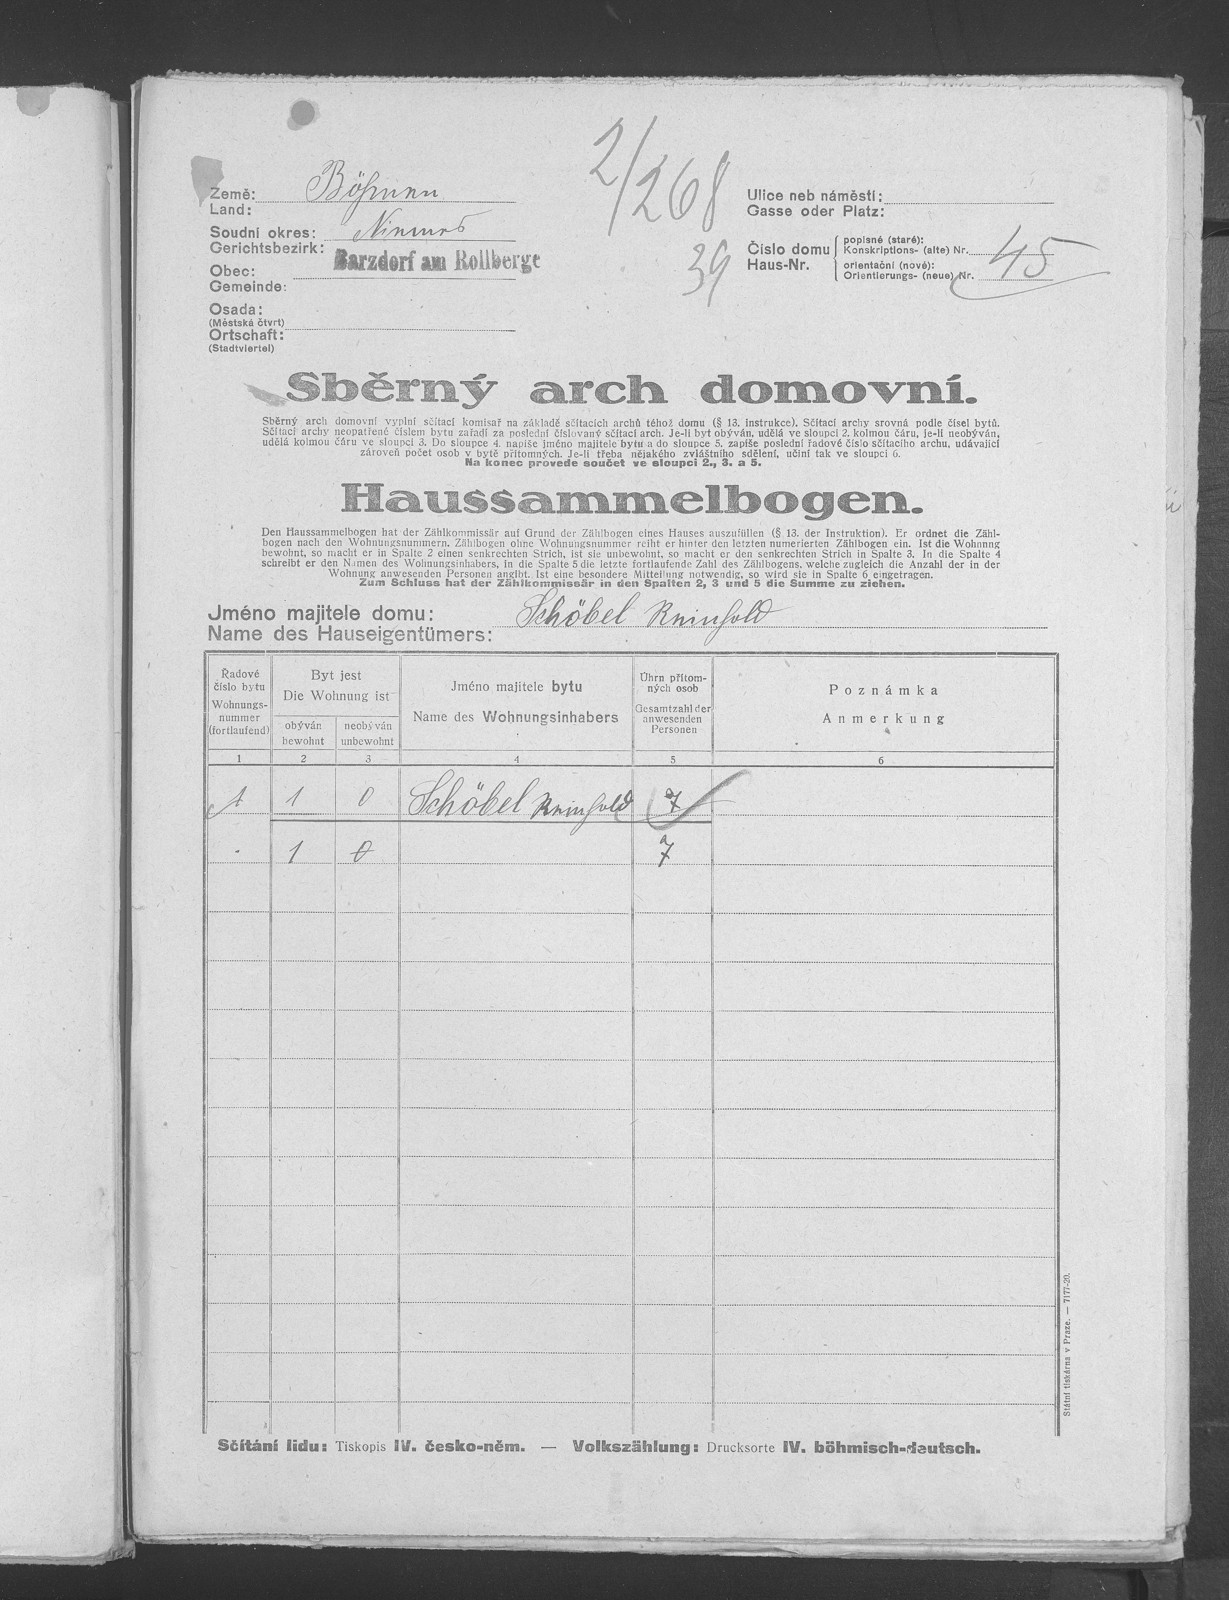 2/268
39
Země: Böhmen
Land:
Soudní okres: Niemes
Gerichtsbezirk:
Obec: Barzdorf am Rollberge
Gemeinde:
Osada:
(Městská čtvrt)
Ortschaft:
(Stadtviertel)
Ulice neb náměstí:
Gasse oder Platz:
Číslo domu
Haus-Nr.
popisné (staré):
Konskriptions- (alte) Nr. 45
orientační (nové):
Orientierungs- (neue) Nr.
Sběrný arch domovní.
Sběrný arch domovní vyplní sčítací komisař na základě sčítacích archů téhož domu (§ 13. instrukce). Sčítací archy srovná podle čísel bytů.
Sčítací archy neopatřené číslem bytu zařadí za poslední číslovaný sčítací arch. Je-li byt obýván, udělá ve sloupci 2. kolmou čáru, je-li neobýván,
udělá kolmou čáru ve sloupci 3. Do sloupce 4. napíše jméno majitele bytu a do sloupce 5. zapíše poslední řadové číslo sčítacího archu, udávající
zároveň počet osob v bytě přítomných. Je-li třeba nějakého zvláštního sdělení, učiní tak ve sloupci 6.
Na konec provede součet ve sloupci 2., 3. a 5.
Haussammelbogen.
Den Haussammelbogen hat der Zählkommissär auf Grund der Zählbogen eines Hauses auszufüllen (§ 13. der Instruktion). Er ordnet die Zähl-
bogen nach den Wohnungsnummern. Zählbogen ohne Wohnungsnummer reiht er hinter den letzten numerierten Zählbogen ein. Ist die Wohnung
bewohnt, so macht er in Spalte 2 einen senkrechten Strich, ist sie unbewohnt, so macht er den senkrechten Strich in Spalte 3. In die Spalte 4
schreibt er den Namen des Wohnungsinhabers, in die Spalte 5 die letzte fortlaufende Zahl des Zählbogens, welche zugleich die Anzahl der in der
Wohnung anwesenden Personen angibt. Ist eine besondere Mitteilung notwendig, so wird sie in Spalte 6 eingetragen.
Zum Schluss hat der Zählkommissär in den Spalten 2, 3 und 5 die Summe zu ziehen.
Jméno majitele domu: Schöbel Reinhold
Name des Hauseigentümers:
Řadové
číslo bytu
Wohnungs-
nummer
(fortlaufend)
Byt jest
Die Wohnung ist
obýván
bewohnt
neobýván
unbewohnt
Jméno majitele bytu
Name des Wohnungsinhabers
Úhrn přítom-
ných osob
Gesamtzahl der
anwesenden
Personen
Poznámka
Anmerkung
1 2 3 4 5 6
1 1 0 Schöbel Reinhold 7
1 0 7
Sčítání lidu: Tiskopis IV. česko-něm. — Volkszählung: Drucksorte IV. böhmisch-deutsch.
Státní tiskárna v Praze. — 7177-20.